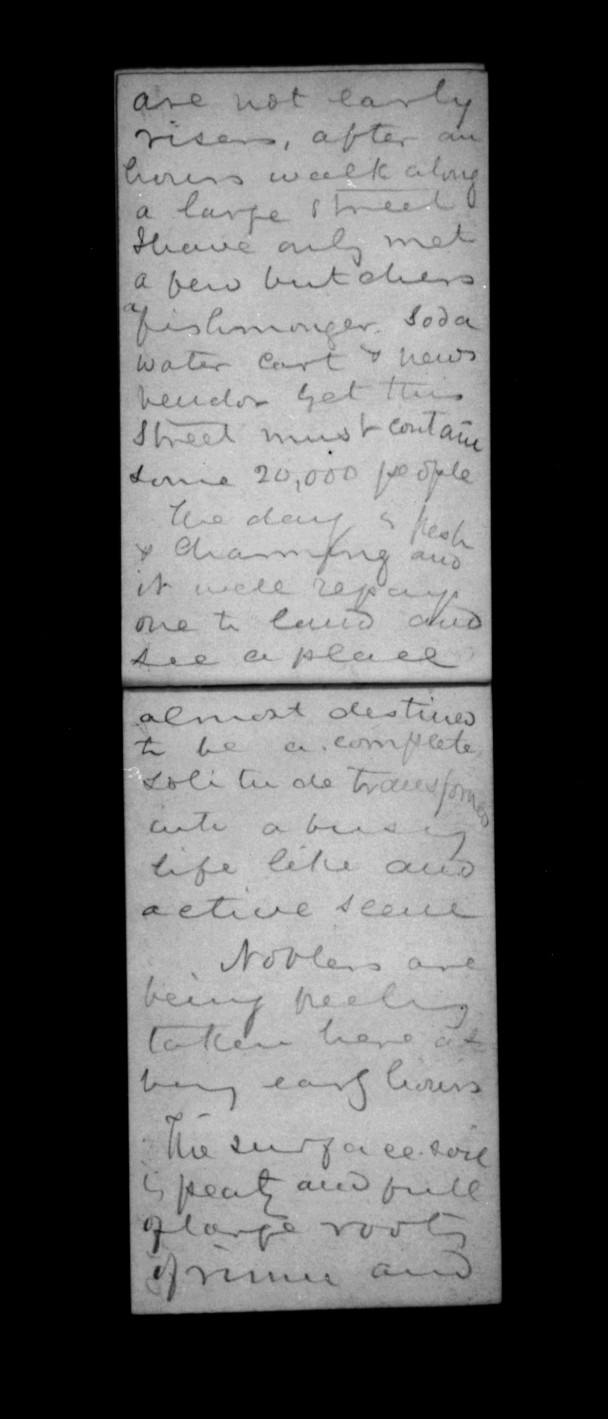 are not early
risers, after an
hours walk along
a large street
I have only met
a few butchers
a fishmonger. Soda
water cart & news
vendor yet this
Street must contain
some 20,000 people
The day is fresh
& charming and
it well repays
one to land and
see a place
almost destined
to be a complete
solitude transformed
into a busy
life like and
active scene
Noblers are
being freely
taken here at
very early hours
The surface soil
is peaty and full
of large roots
of rimu and